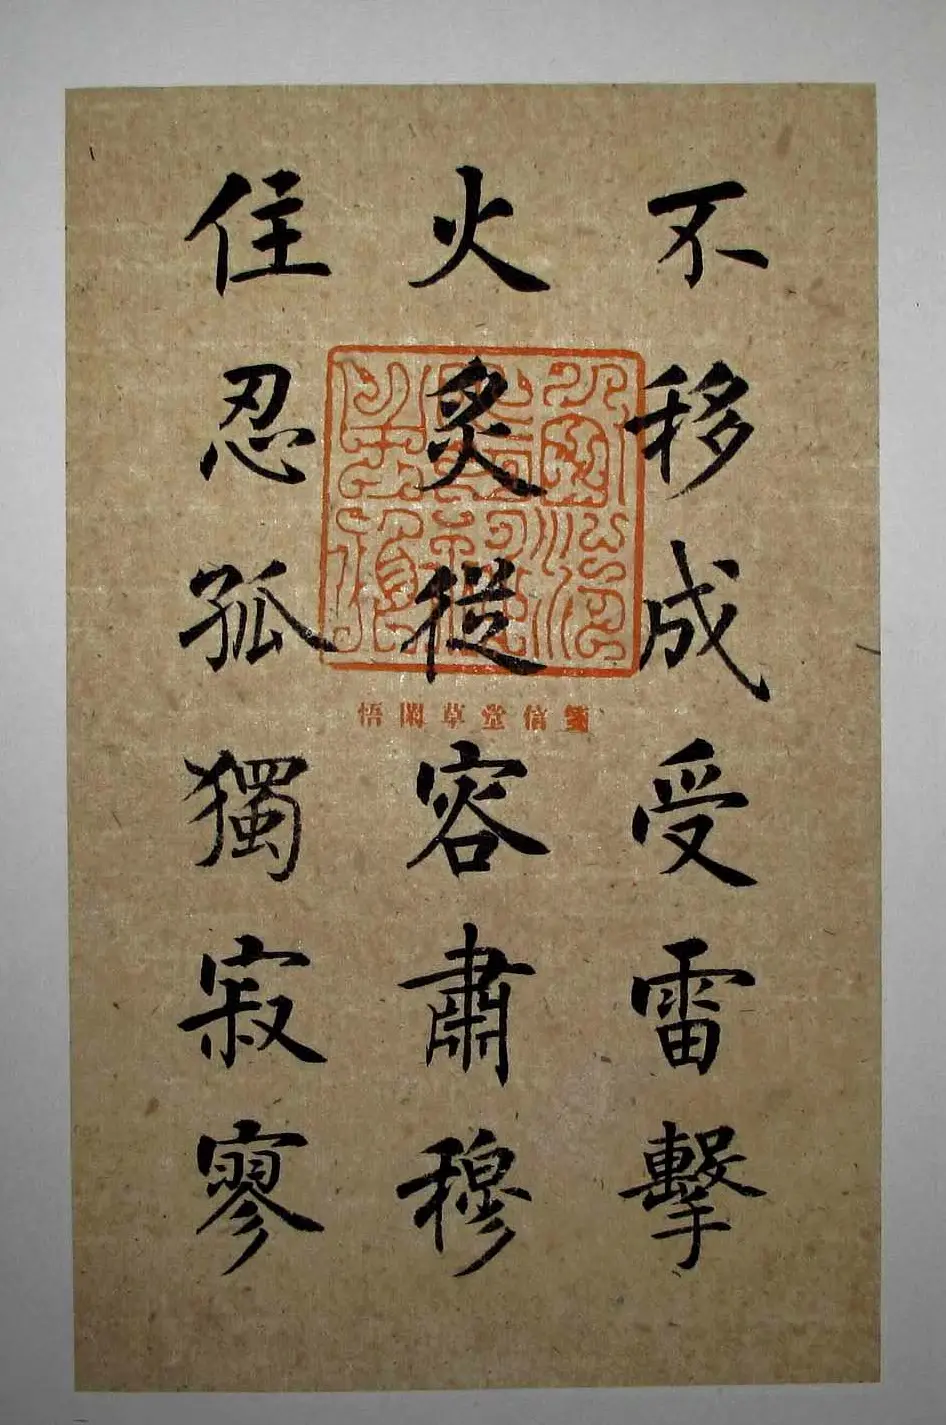 不移成受雷擊
火炙從容肅穆
住忍孤獨寂寥
悟閑草堂信箋